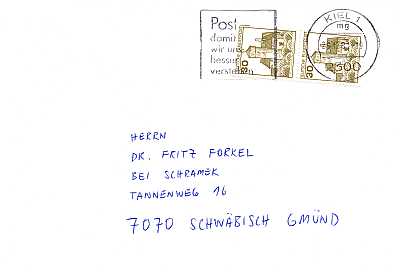 Post
damit
wir uns
besser
verstehen
30
30
KIEL 1
mg
2300
HERRN
DR. FRITZ FORKEL
BEI SCHRAMEK
TANNENWEG 16
7070 SCHWÄBISCH GMÜND